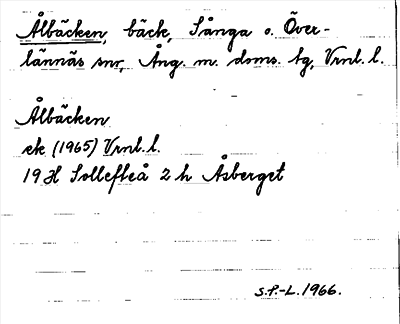 Ålbäcken, bäck, Sånga o. Över-
lännäs snr, Ång. m. doms. tg, Vrnl. l.
Ålbäcken
ek (1965) Vrnl. l.
19 H Sollefteå 2 h Åsberget
S.P.-L. 1966.